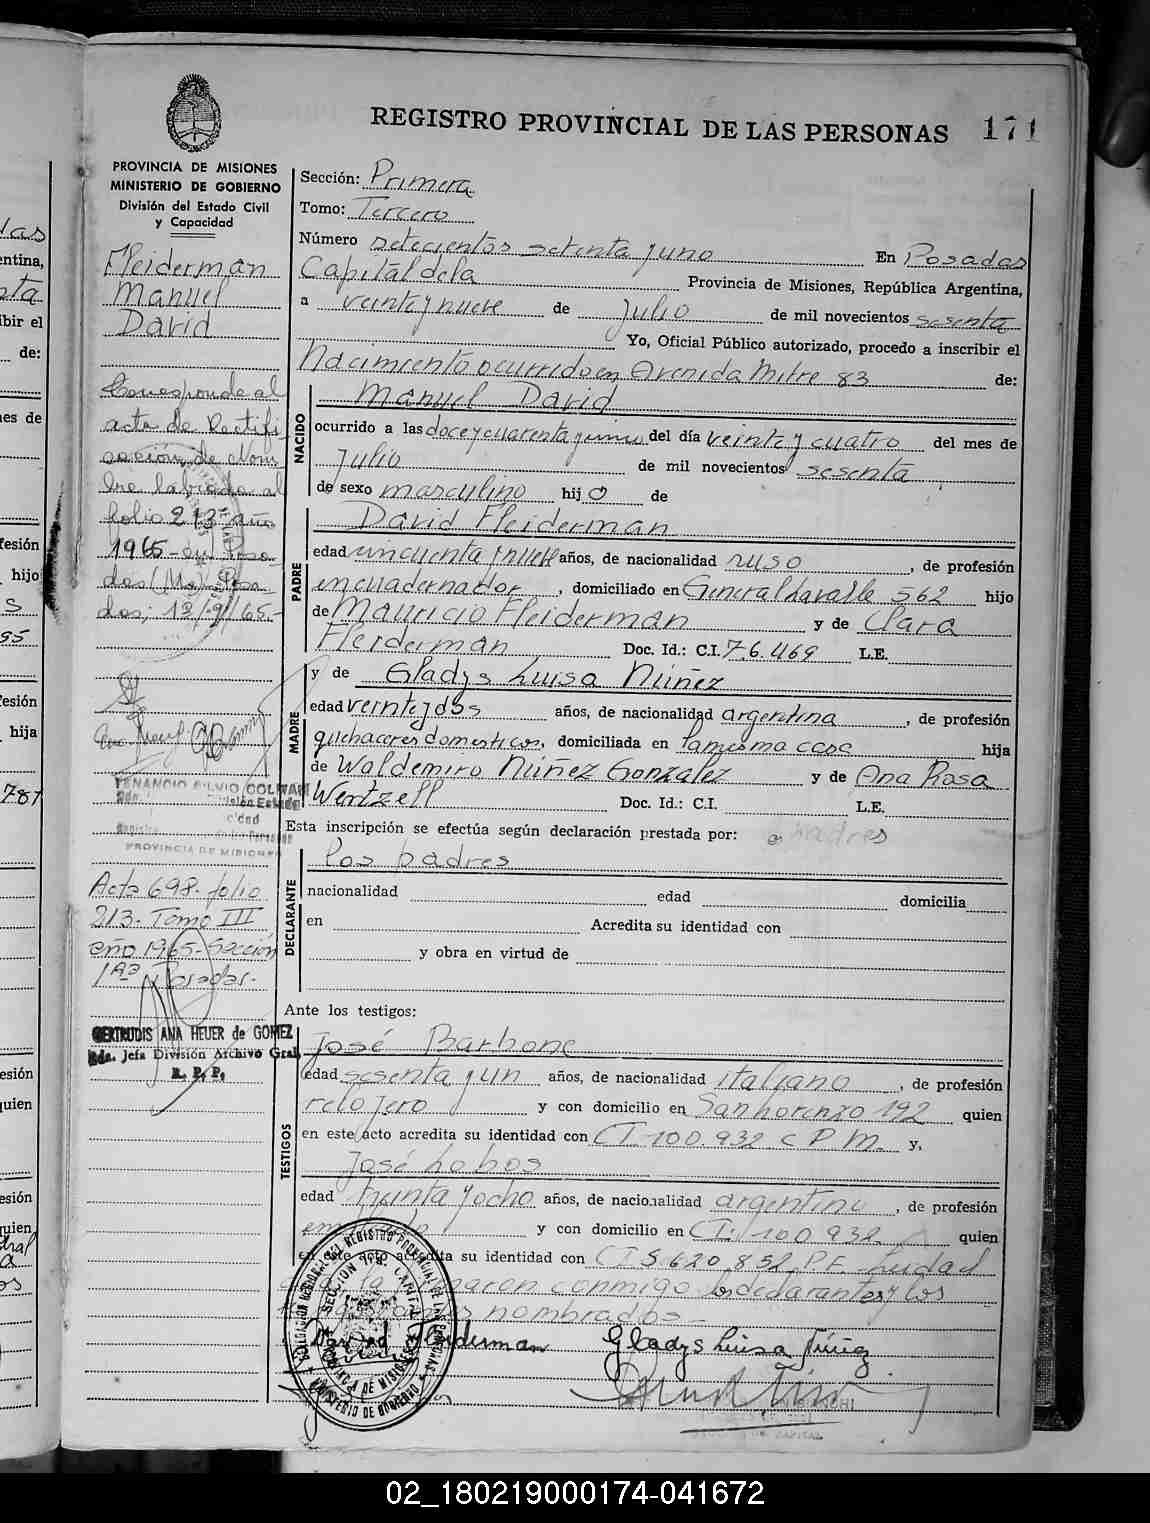 REGISTRO PROVINCIAL DE LAS PERSONAS 171
PROVINCIA DE MISIONES
MINISTERIO DE GOBIERNO
División del Estado Civil
y Capacidad
Fleiderman
Manuel
David
Corresponde al
acta de Rectifi
cación de Nom
bre labrada al
folio 213 año
1965 - en Posa
das (Ms) Posa
das; 13/9/65.-
VENANCIO SILVIO
PROVINCIA DE MISIONES
Acta 698. folio
213. Tomo III
año 1965 - Sección
1ra Posadas.
GERTRUDIS ANA HEUER de GOMEZ
Jefa División Archivo Gral.
R. P. P.
Sección: Primera
Tomo: Tercero
Número setecientos setenta y uno En Posadas
Capital de la Provincia de Misiones, República Argentina,
a veinte y nueve de Julio de mil novecientos sesenta
Yo, Oficial Público autorizado, procedo a inscribir el
Nacimiento ocurrido en Avenida Mitre 83 de:
NACIDO
Manuel David
ocurrido a las doce y cuarenta y del día veinte y cuatro del mes de
Julio de mil novecientos sesenta
de sexo masculino hijo de
PADRE
David Fleiderman
edad cincuenta y nueve años, de nacionalidad ruso, de profesión
encuadernador, domiciliado en General Lavalle 562 hijo
de Mauricio Fleiderman y de Clara
Fleiderman Doc. Id.: C.I. 7.6.469 L.E.
MADRE
y de Gladys Luisa Núñez
edad veinte y dos años, de nacionalidad argentina, de profesión
quehaceres domesticos, domiciliada en la misma casa hija
de Waldemiro Núñez Gonzalez y de Ana Rosa
Wertzell Doc. Id.: C.I. L.E.
Esta inscripción se efectúa según declaración prestada por:
DECLARANTE
los padres
nacionalidad edad domicilia
en Acredita su identidad con
y obra en virtud de
Ante los testigos:
TESTIGOS
José Barbone
edad sesenta y un años, de nacionalidad italiano, de profesión
relojero y con domicilio en San Lorenzo 192 quien
en este acto acredita su identidad con C I. 100.932 C P M. y,
José Lobos
edad treinta y ocho años, de nacionalidad argentino, de profesión
y con domicilio en C I. 100.932 quien
en este acto acredita su identidad con C I 5.620.852 P F. Leida el
conmigo los declarantes y los
nombrados -
David Fleiderman Gladys Luisa Núñez
02_180219000174-041672